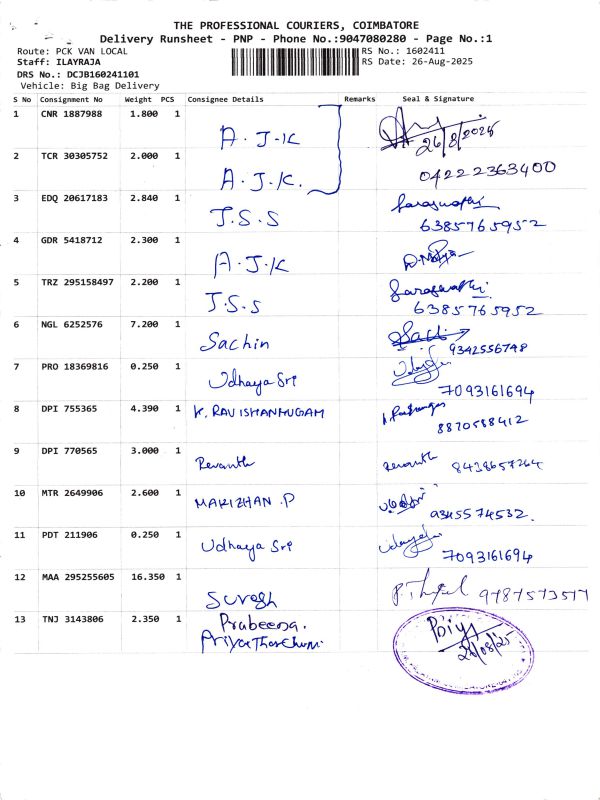 THE PROFESSIONAL COURIERS, COIMBATORE
Delivery Runsheet - PNP - Phone No.:9047080280 - Page No.:1
Route: PCK VAN LOCAL
RS No.: 1602411
Staff: ILAYRAJA
RS Date: 26-Aug-2025
DRS No.: DCJB160241101
Vehicle: Big Bag Delivery
S No Consignment No Weight PCS Consignee Details Remarks Seal & Signature
1 CNR 1887988 1.800 1 A.J.K 26/8/2025
2 TCR 30305752 2.000 1 A.J.K. 04222363400
3 EDQ 20617183 2.840 1 J.S.S Saraswathi
6385765952
4 GDR 5418712 2.300 1 A.J.K
5 TRZ 295158497 2.200 1 J.S.S Saraswathi
6385765952
6 NGL 6252576 7.200 1 Sachin
9342556748
7 PRO 18369816 0.250 1 Udhaya Sri
7093161694
8 DPI 755365 4.390 1 K. RAVISHANMUGAM
8870588412
9 DPI 770565 3.000 1 Revanth revanth 8438657264
10 MTR 2649906 2.600 1 MARIZHAN .P
9345574532.
11 PDT 211906 0.250 1 Udhaya Sri
7093161694
12 MAA 295255605 16.350 1 Suresh 9787573577
13 TNJ 3143806 2.350 1 Prabeena.
26/08/25